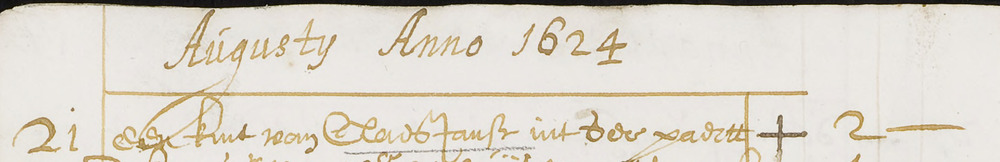 Augusty Anno 1624
21 een kint van Claes Jansz int der paertt + 2 —